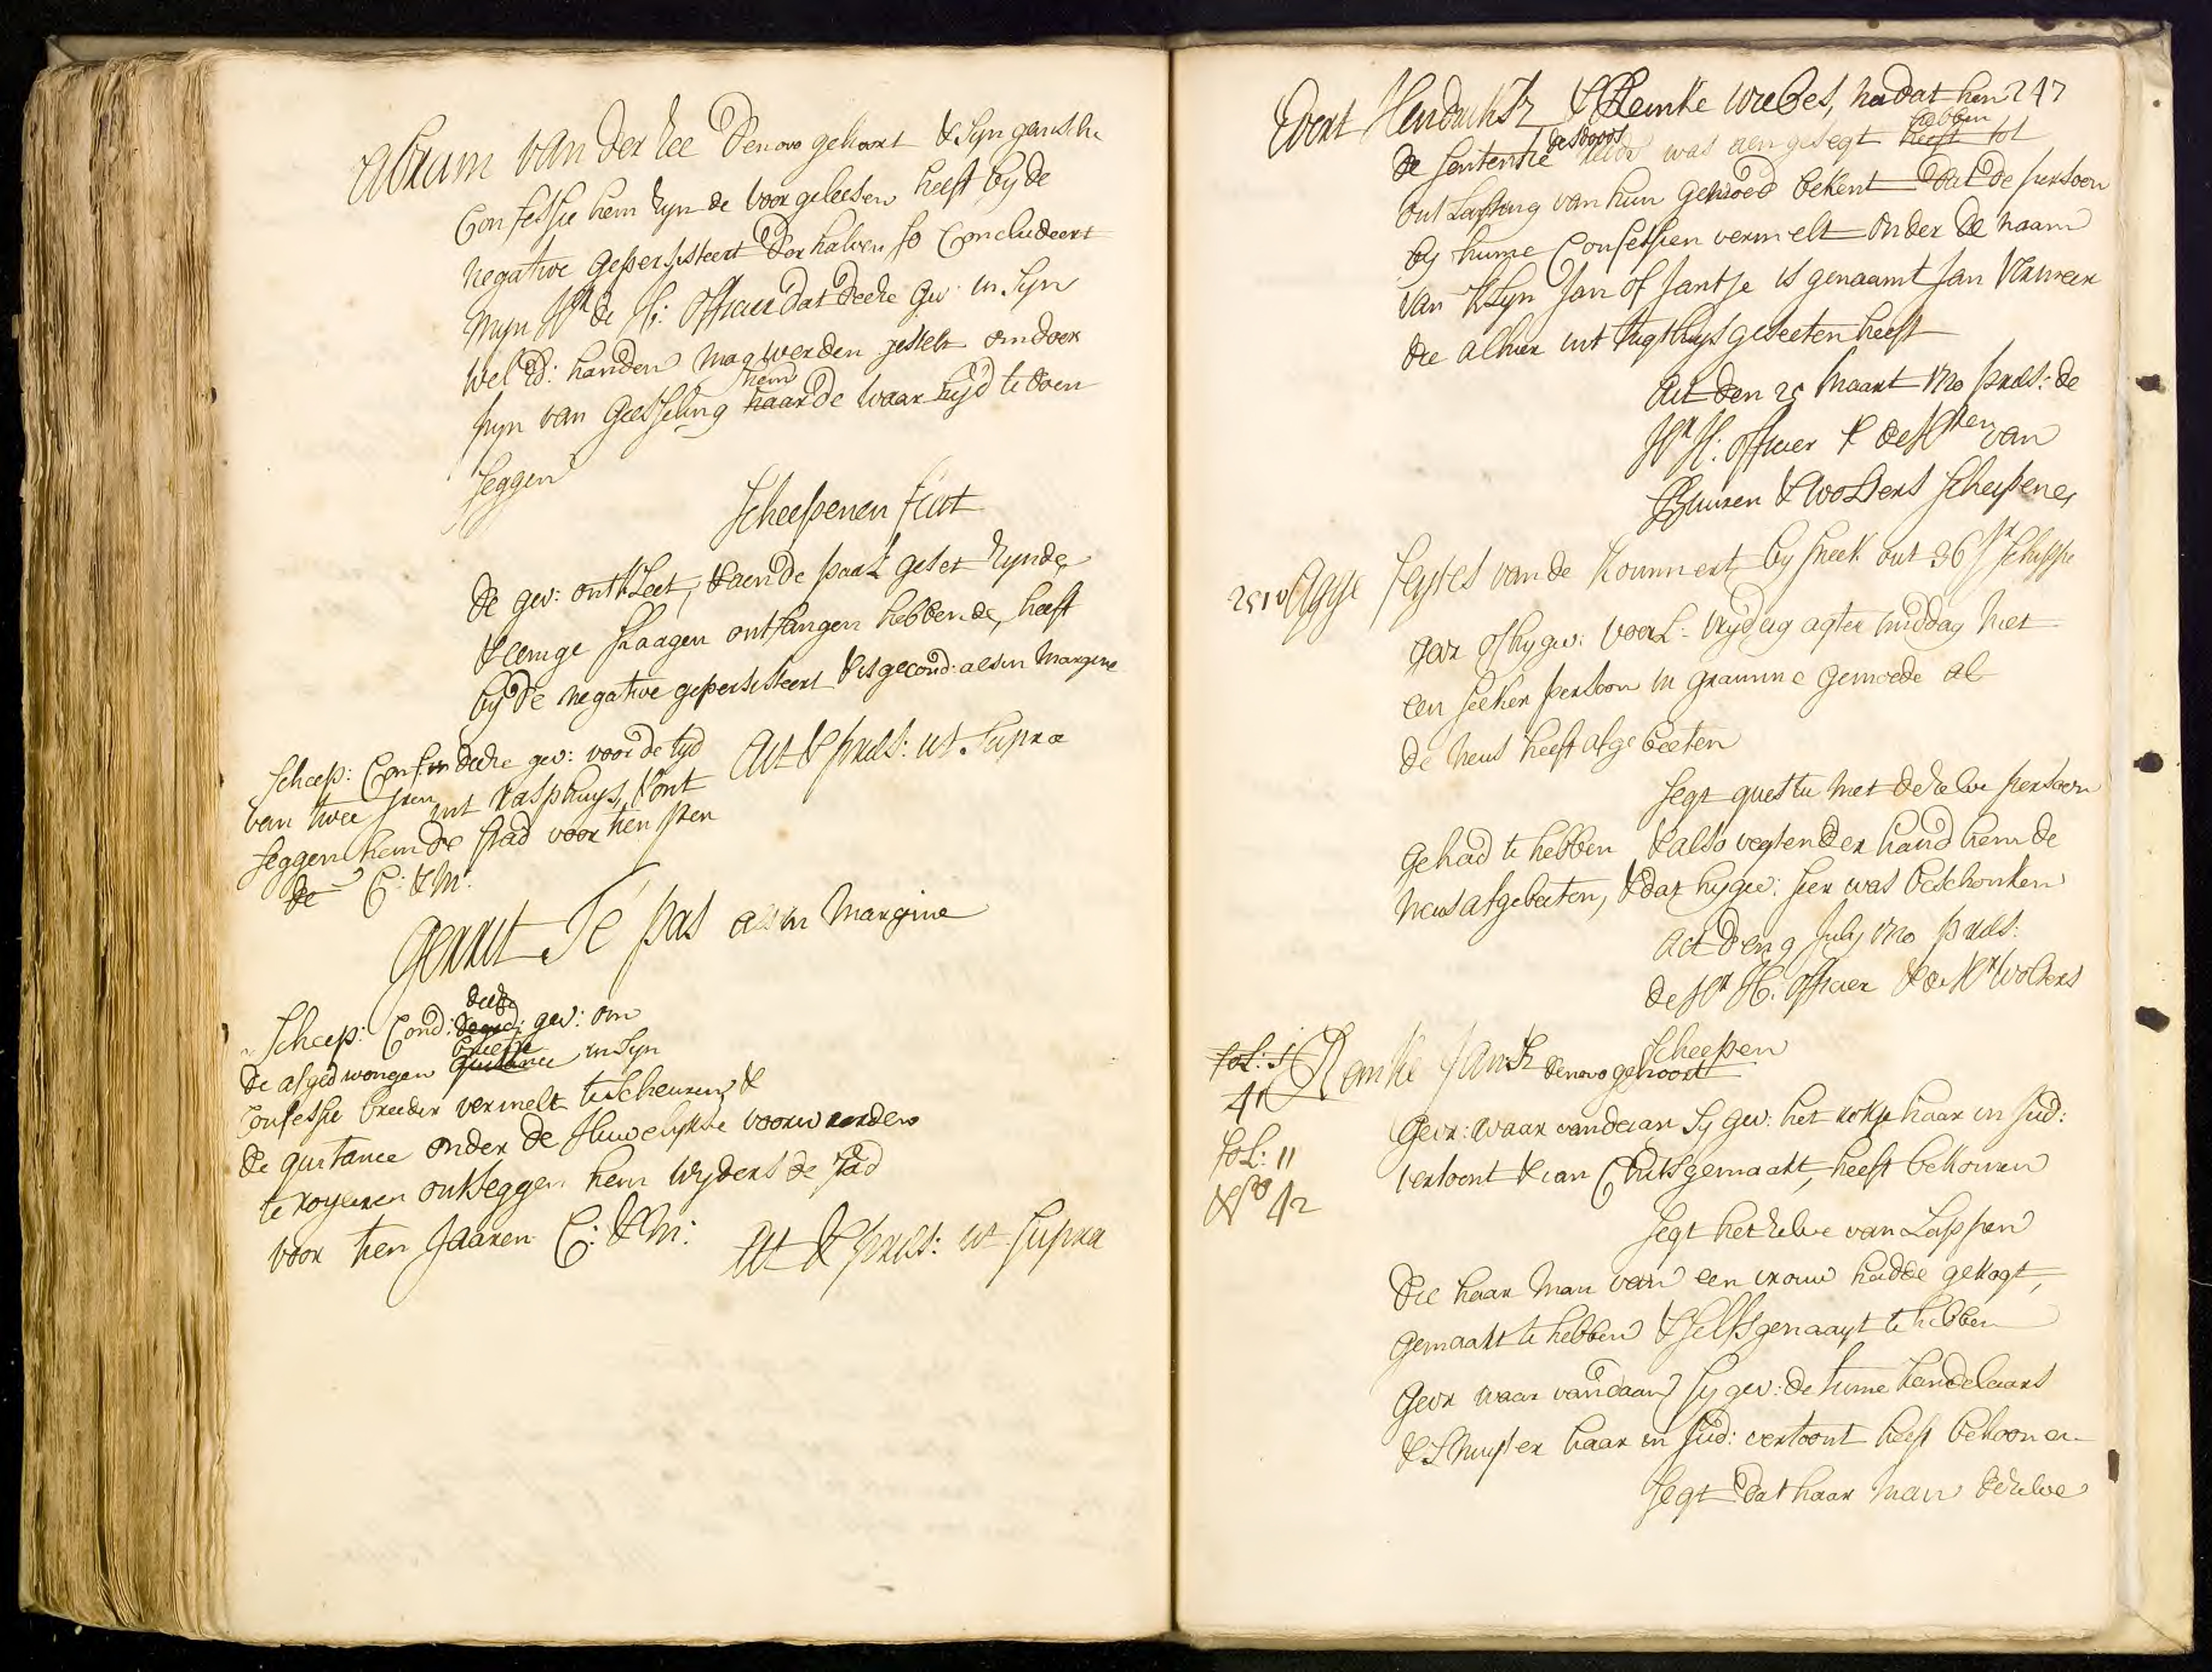 Abram van der Zee denovo gehoort & Syn gansche
Confessie hem zynde voorgeleesen heeft by de
negative gepersisteert Derhalven so Concludeert
myn Hr de H: Officier dat deeze gev: in Syn
wel Ed: handen mag werden gestelt om door
pyn van Geesseling haar hem de waarhyd te doen
seggen
Scheepenen fiat
De gev: ontkleet, & aen de paal geset zynde,
& eenige slaagen ontfangen hebbende, heeft
by de negative gepersisteert & is gecond: als in Margine
Act & præs: ut Supra
Scheep: Conf: deeze gev: voor de tyd
van twee Jren int rasphuys, & ont
seggen hem de stad voor tien Jren
de C: & M:
Gerrit Te pas als in Margine
Scheep: Cond: deeze gev: om
de afgedwongen quitance in Syn
Confessie breeder vermelt te scheuren &
de quitance onder de Huwelykse voorwaarden
te royeeren ontseggen hem wyders de stad
voor tien Jaaren C: & M:
Act & præs: ut Supra
247
Evert Hendriksz & Remke Wiebes, nadat hen
de Sententie des doods was aengesegt heeft hebben tot
ontlasting van hun gemoed bekent dat de persoon
by hunne Confessien vermelt onder de naam
van Klyn Jan of Jantje is genaamt Jan Vermeer
die alhier int tugthuys geseeten heeft
Act den 25 Maart 1720 præs: de
Hr H: Officier & de Hren van
Buuren & Wolters Scheepenen
2510 Agge Feytes van de Kouwmert by Sneek out 36 Jr Schipper
gevr of hy gev: voorl: Vrydag agter middag niet
een seeker persoon in gramme gemoede al
de neus heeft afgebeeten
Segt questie met dezelve persoon
gehad te hebben & also vegtender hand hem de
neus afgebeeten, & dat hy gev: seer was beschonken
Act den 9 July 1720 præs:
de Hr H: Officier & de Hr Wolters
Scheepen
fol: 5
41
fol: 11
No 42
Remke Jansz denovo gehoort
Gevr: waar vandaan Sy gev: het rokje haar in Jud:
vertoont & van Chits gemaakt, heeft bekomen
Segt hetzelve van Lappen
die haar man van een vrouw hadde gekogt,
gemaakt te hebben & selfs genaayt te hebben
Gevr waar vandaan Sy gev: de twee kandelaars
& Snuyter haar in Jud: vertoont heeft bekoomen
Segt dat haar man dezelve